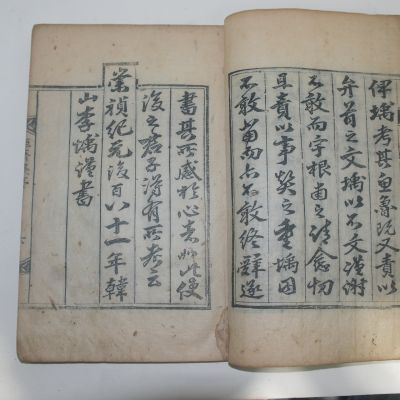 俾堣考其魚魯既又責以
弁首之文堣以不文謹謝
不敢而宇根甫之請愈切
且責以事契之重堣固
不敢當而亦不敢終辭遂
書其所感於心者如此使
後之君子得有所考云
崇禎紀元後百八十一年韓
山李堣謹書